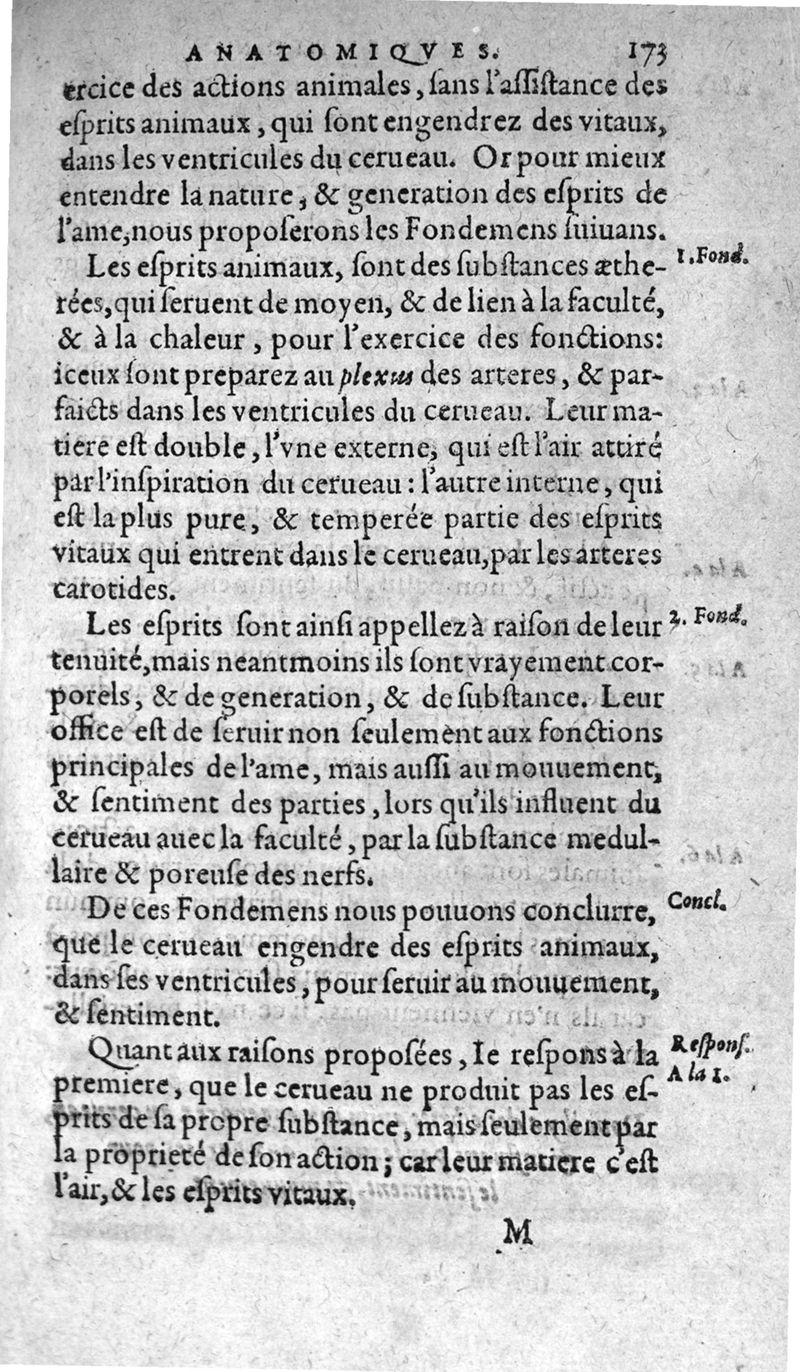 ANATOMIQVES. 173
ercice des actions animales, ſans l'aſſiſtance des
eſprits animaux, qui ſont engendrez des vitaux,
dans les ventricules du cerueau. Or pour mieux
entendre la nature, & generation des eſprits de
l'ame, nous propoſerons les Fondemens ſuiuans.
Les eſprits animaux, ſont des ſubſtances æthe- 1. Fond.
rées, qui ſeruent de moyen, & de lien à la faculté,
& à la chaleur, pour l'exercice des fonctions:
iceux ſont preparez au plexus des arteres, & par-
faicts dans les ventricules du cerueau. Leur ma-
tiere eſt double, l'vne externe, qui eſt l'air attiré
par l'inſpiration du cerueau: l'autre interne, qui
eſt la plus pure, & temperée partie des eſprits
vitaux qui entrent dans le cerueau, par les arteres
carotides.
Les eſprits ſont ainſi appellez à raiſon de leur 2. Fond.
tenuité, mais neantmoins ils ſont vrayement cor-
porels, & de generation, & de ſubſtance. Leur
office eſt de ſeruir non ſeulemẽt aux fonctions
principales de l'ame, mais auſſi au mouuement,
& ſentiment des parties, lors qu'ils influent du
cerueau auec la faculté, par la ſubſtance medul-
laire & poreuſe des nerfs.
De ces Fondemens nous pouuons conclurre, Concl.
que le cerueau engendre des eſprits animaux,
dans ſes ventricules, pour ſeruir au mouuement,
& ſentiment.
Quant aux raiſons propoſées, Ie reſpons à la Reſponſ.
premiere, que le cerueau ne produit pas les eſ- A la 1.
prits de ſa propre ſubſtance, mais ſeulement par
la proprieté de ſon action; car leur matiere c'eſt
l'air, & les eſprits vitaux.
M